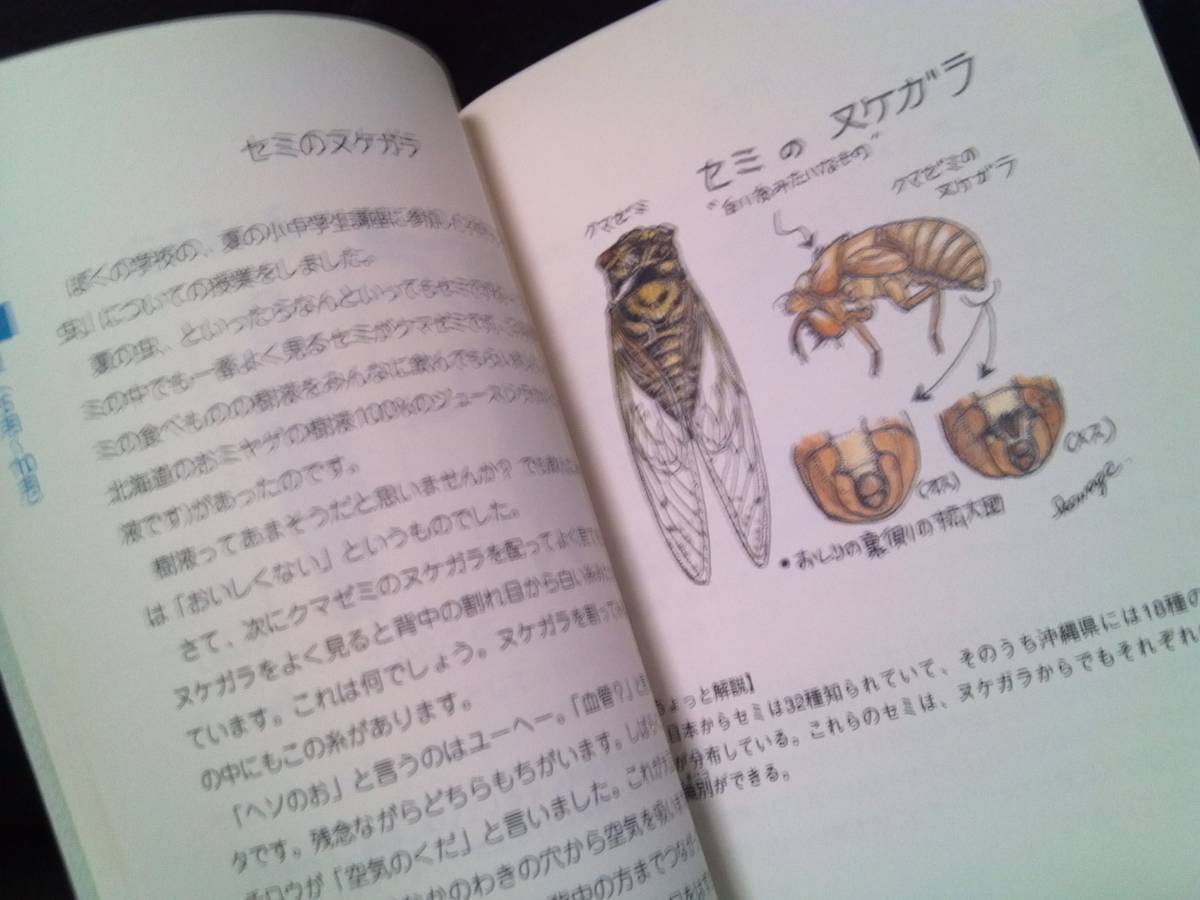 セミのヌケガラ
ぼくの学校の、夏の小中学生講座に参加し
虫」についての授業をしました。
夏の虫、といったらなんといってもセミ
ミの中でも一番よく見るセミがクマゼミです。
ミの食べものの樹液をみんなに飲んでもらい
北海道のおミヤゲの樹液100%のジュース
液です)があったのです。
樹液ってあまそうだと思いませんか? でも
は「おいしくない」というものでした。
さて、次にクマゼミのヌケガラを配ってよく見て
ヌケガラをよく見ると背中の割れ目から白い糸
ています。これは何でしょう。ヌケガラを割って
の中にもこの糸があります。
「ヘソのお」と言うのはユーヘー。「血管?」と
タです。残念ながらどちらもちがいます。しばら
チロウが「空気のくだ」と言いました。これが
なかのわきの穴から空気を吸い
背中の方までつなが
セミ の ヌケガラ
クマゼミ
"白い糸みたいなもの"
クマゼミの
ヌケガラ
(オス)
(メス)
• おしりの裏側の拡大図
ちょっと解説】
日本からセミは32種知られていて、そのうち沖縄県には18種の
が分布している。これらのセミは、ヌケガラからでもそれぞれ
識別ができる。